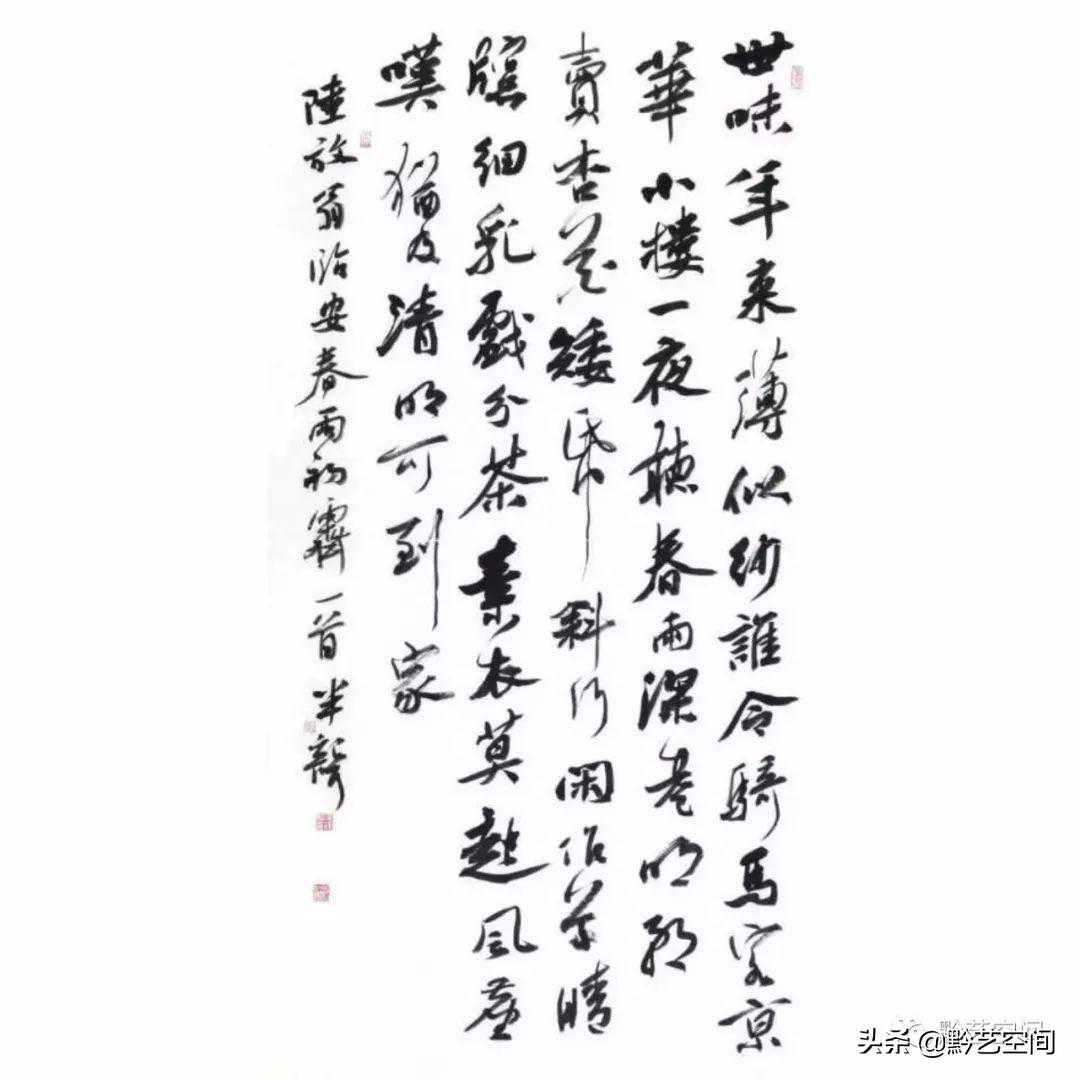 世味年来薄似紗誰令騎馬客京
華小樓一夜聽春雨深巷明朝
賣杏花矮帋斜行閑作草晴
牕細乳戲分茶素衣莫起風塵
嘆猶及清明可到家
陸放翁臨安春雨初霽一首 半
黔艺空间
头条 @黔艺空间